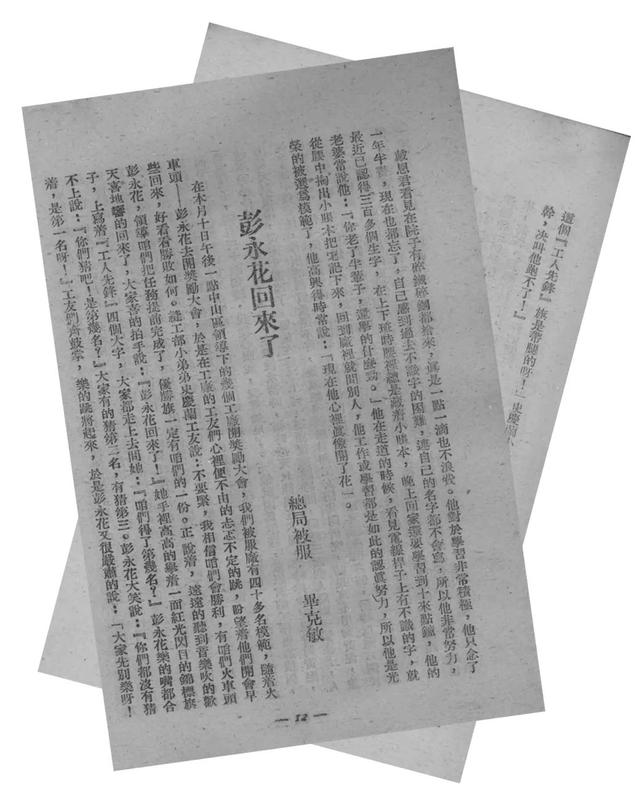 戴恩君看見在院子有碎鐵碎銅都拾來，眞是一點一滴也不浪費。他對於學習非常積極，他只念了
一年半書，現在也都忘了，自己感到過去不識字的困難，連自己的名字都不會寫，所以他非常努力，
最近已認得三百多個生字，在上下班時腰裡總是藏着小賬本，晚上回家還要學習到十來點鐘，他的
老婆常說他：「你老了半輩子，還學的什麽勁。」他在走道的時候，看見電線桿子上有不識的字，就
從腰中掏出小賬本把它記下來，回到廠裡就問別人，他工作或學習都是如此的認眞努力，所以他是光
榮的被選爲模範了，他高興得時常說：「現在他心裡還像開了花」。
彭永花回來了
總局被服　畢克敏
在本月十日午後一點中山區領導下的幾個工廠開獎勵大會，我們被服廠有四十多名模範，隨着火
車頭——彭永花去開獎勵大會，於是在工廠的工友們心裡便不由的忐忑不定的跳，盼望着他們開會早
些回來，好看看勝敗如何。縫工部小弟弟史慶蘭工友說：不要緊，我相信咱們會勝利，有咱們火車頭
彭永花，領導咱們把任務提前完成了，優勝旗一定有咱們的一份。正說着，遠遠的聽到音樂吹的歡
天喜地響的回來了，大家喜的拍手說：『彭永花回來了！』她手裡高高的舉着一面紅光閃目的錦標旗
子，上寫着『工人先鋒』四個大字，大家都走上去問她：『咱們得了第幾名？』彭永花樂的嘴都合
不上說：『你們猜吧！是第幾名？』大家有的猜第二名，有猜第三。彭永花大笑說：『你們都沒有猜
着，是第一名呀！』工友們齊鼓掌，樂的跳將起來，於是彭永花又很嚴肅的說：「大家先別樂呀！
— 12 —
這個『工人先鋒』旗是帶腿的呀！』史慶蘭
幹，决叫他跑不了！』